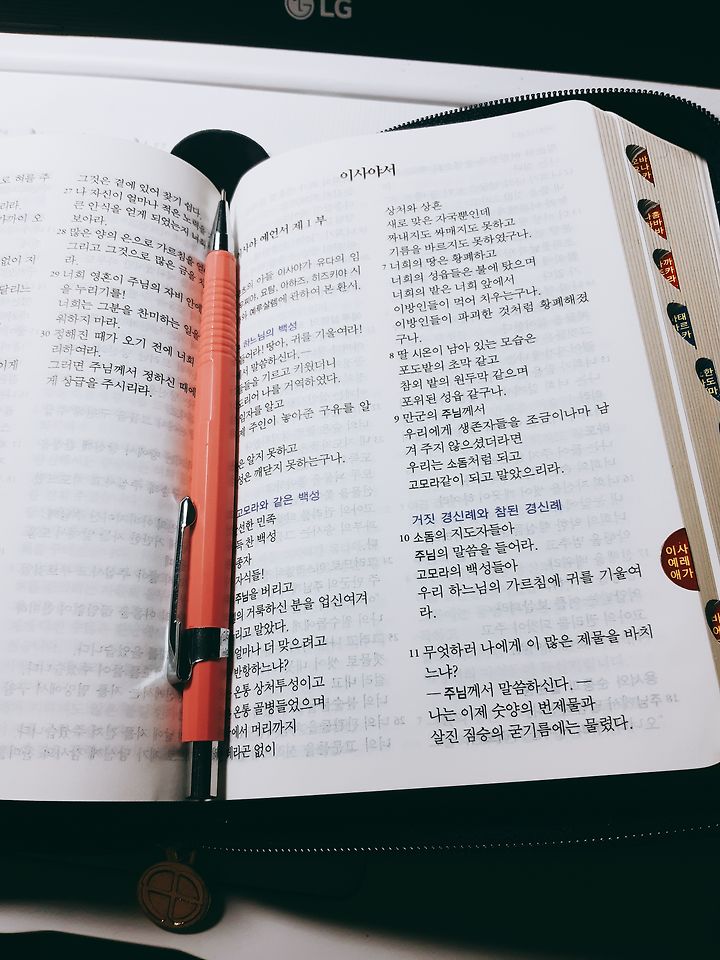 LG
로 혀를 주
리라.
없이 지
달리는
이게
그것은 곁에 있어 찾기 쉽다.
27 나 자신이 얼마나 적은 노력을
큰 안식을 얻게 되었는지 너희
보아라.
28 많은 양의 은으로 가르침을 얻
그리고 그것으로 많은 금을 차
라.
29 너희 영혼이 주님의 자비 안에
을 누리기를!
너희는 그분을 찬미하는 일을
워하지 마라.
30 정해진 때가 오기 전에 너희
리하여라.
그러면 주님께서 정하신 때에
게 상급을 주시리라.
이사야서
예언서 제 1 부
아들 이사야가 유다의 임
요탐, 아하즈, 히즈키야 시
예루살렘에 관하여 본 환시.
하느님의 백성
땅아, 귀를 기울여라!
말씀하신다. ―
기르고 키웠더니
나를 거역하였다.
알고
주인이 놓아준 구유를 알
알지 못하고
깨닫지 못하는구나.
고모라와 같은 백성
민족
찬 백성
종자
자식들!
주님을 버리고
거룩하신 분을 업신여겨
리고 말았다.
얼마나 더 맞으려고
반항하느냐?
온통 상처투성이고
온통 골병들었으며
에서 머리까지
데라곤 없이
상처와 상흔
새로 맞은 자국뿐인데
짜내지도 싸매지도 못하고
기름을 바르지도 못하였구나.
7 너희의 땅은 황폐하고
너희의 성읍들은 불에 탔으며
너희의 밭은 너희 앞에서
이방인들이 먹어 치우는구나.
이방인들이 파괴한 것처럼 황폐해졌
구나.
8 딸 시온이 남아 있는 모습은
포도밭의 초막 같고
참외 밭의 원두막 같으며
포위된 성읍 같구나.
9 만군의 주님께서
우리에게 생존자들을 조금이나마 남
겨 주지 않으셨더라면
우리는 소돔처럼 되고
고모라같이 되고 말았으리라.
거짓 경신례와 참된 경신례
10 소돔의 지도자들아
주님의 말씀을 들어라.
고모라의 백성들아
우리 하느님의 가르침에 귀를 기울여
라.
11 무엇하러 나에게 이 많은 제물을 바치
느냐?
― 주님께서 말씀하신다. ―
나는 이제 숫양의 번제물과
살진 짐승의 굳기름에는 물렸다.
이사
예레
애가